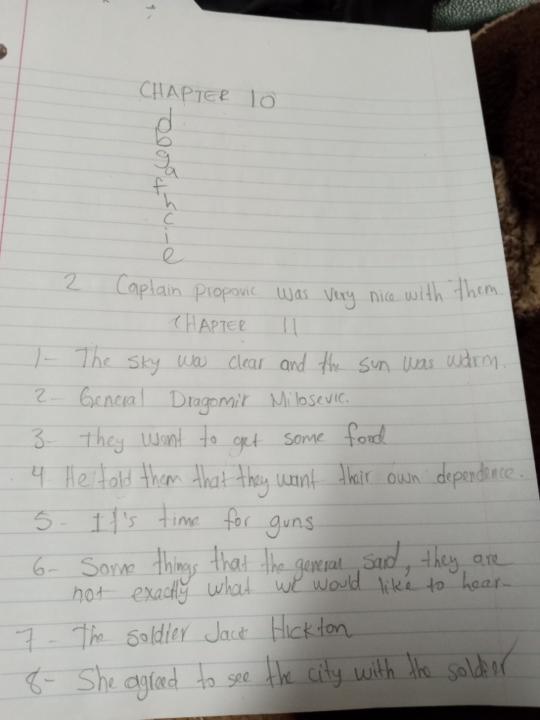 CHAPTER 10
d
b
g
a
f
h
c
i
e
2 Captain propovic was very nice with them
CHAPTER 11
1- The sky wa clear and the sun was warm.
2- General Dragomir Milosevic.
3- They want to get some food
4 He told them that they want their own dependence.
5- It's time for guns
6- Some things that the general said, they are
not exactly what we would like to hear-
7- The soldier Jack Hickton
8- She agreed to see the city with the soldier